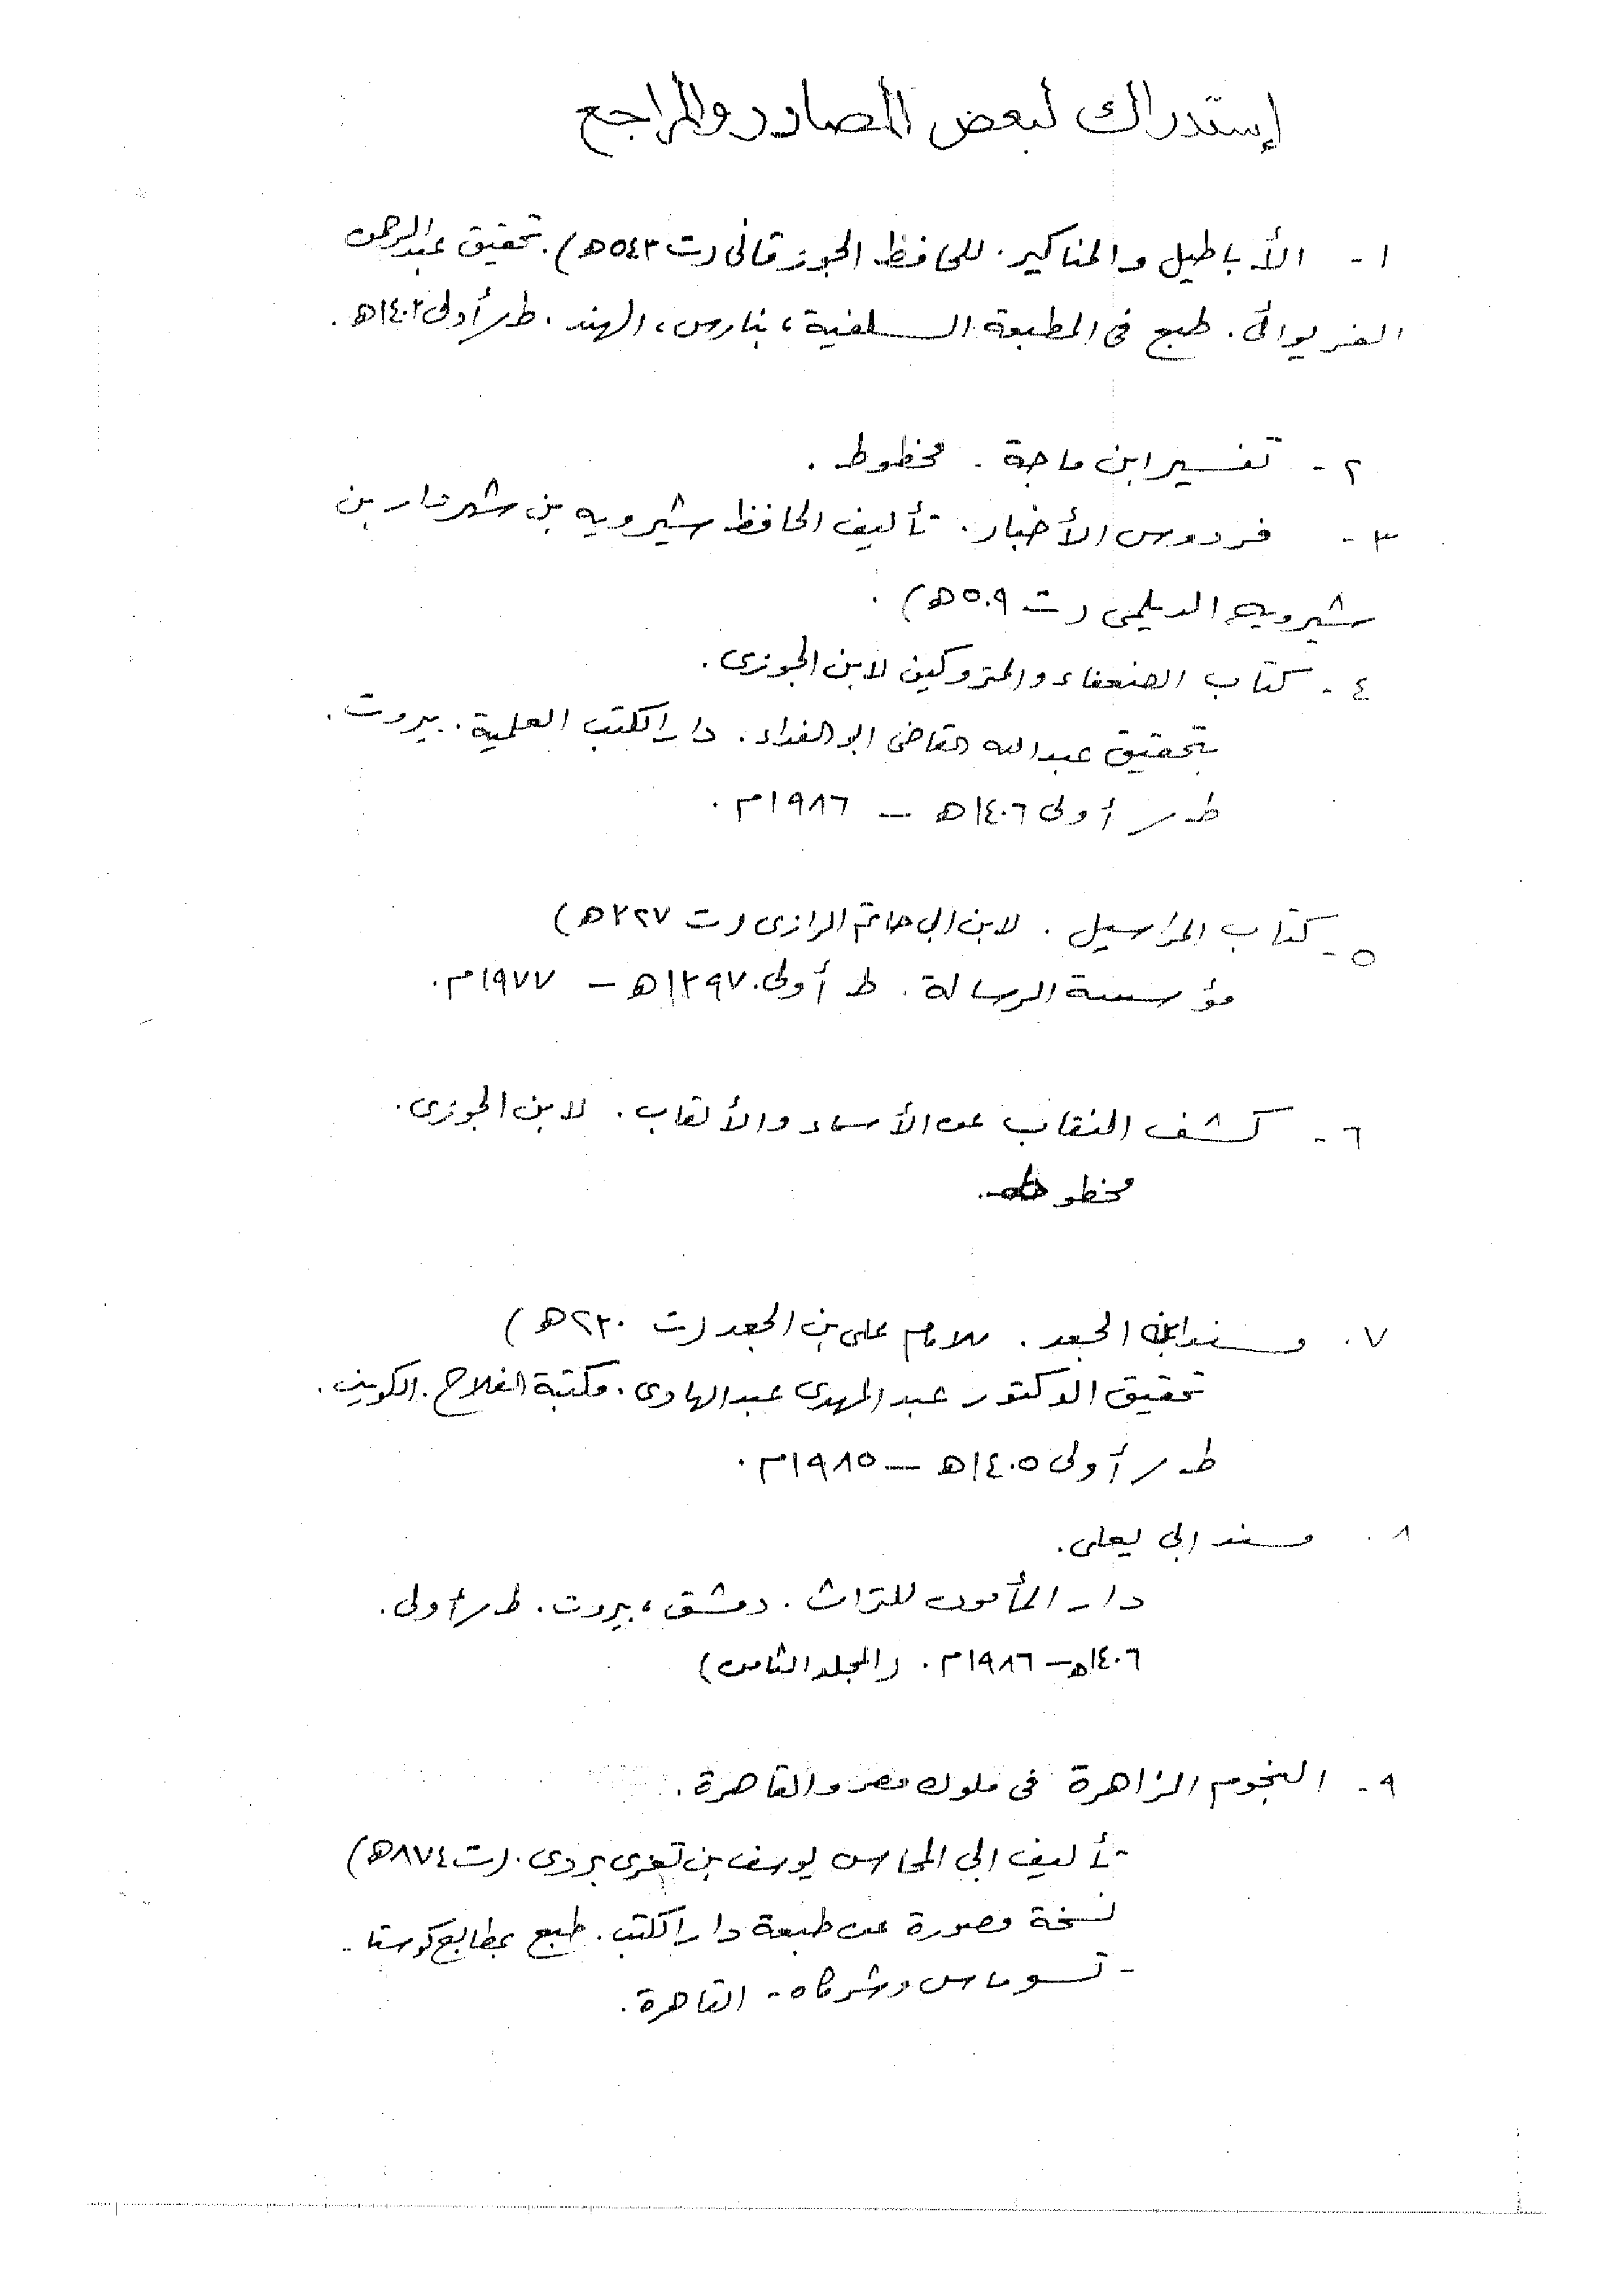 إستدراك لبعض المصادر والمراجع
١ - الأباطيل والمناكير. للحافظ الجوزقاني (ت ٥٤٣هـ). تحقيق عبدالرحمن
الفريوائي. طبع في المطبعة السلفية، بنارس، الهند. ط/أولى ١٤٠٣هـ.
٢ - تفسير ابن ماجة. مخطوط.
٣ - فردوس الأخبار. تأليف الحافظ شيرويه بن شهردار بن
شيرويه الديلمي (ت ٥٠٩هـ).
٤ - كتاب الضعفاء والمتروكين لابن الجوزي.
بتحقيق عبدالله القاضي ابو الفداء. دار الكتب العلمية. بيروت.
ط/ أولى ١٤٠٦هـ - ١٩٨٦م.
٥ - كتاب المراسيل. لابن ابي حاتم الرازي (ت ٣٢٧هـ)
مؤسسة الرسالة. ط أولى. ١٣٩٧هـ - ١٩٧٧م.
٦ - كشف النقاب عن الأسماء والألقاب. لابن الجوزي.
مخطوط.
٧. مسند ابن الجعد. للامام علي بن الجعد (ت ٢٣٠هـ)
تحقيق الدكتور عبد المهدي عبدالهادي. مكتبة الفلاح. الكويت.
ط/ أولى ١٤٠٥هـ - ١٩٨٥م.
٨. مسند ابي يعلى.
دار المأمون للتراث. دمشق، بيروت. ط/أولى.
١٤٠٦هـ - ١٩٨٦م. (المجلد الثامن)
٩ - النجوم الزاهرة في ملوك مصر والقاهرة.
تأليف ابي المحاسن يوسف بن تغري بردي. (ت ٨٧٤هـ)
نسخة مصورة عن طبعة دار الكتب. طبع بمطابع كوستا -
- تسوماس وشركاه - القاهرة.